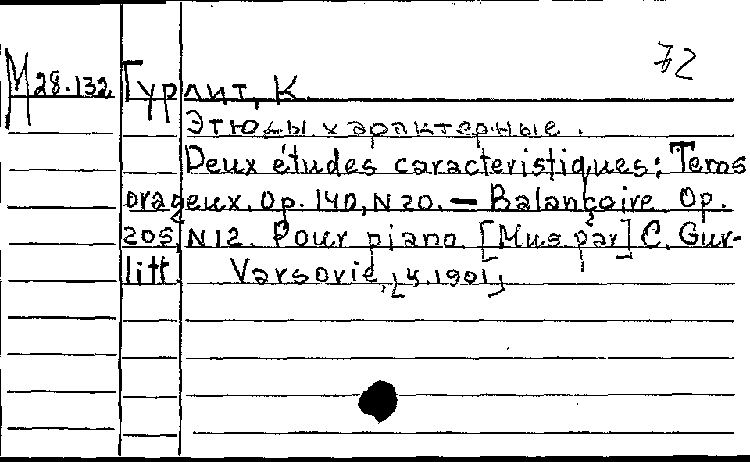 72
M 28.132 Гурлит, К.
Этюды характерные.
Deux études caracteristiques: Tems
orageux. Op. 140, N 20. — Balançoire Op.
205, N 12. Pour piano [Mus. par] C. Gur-
litt. Varsovie, [ц. 1901]